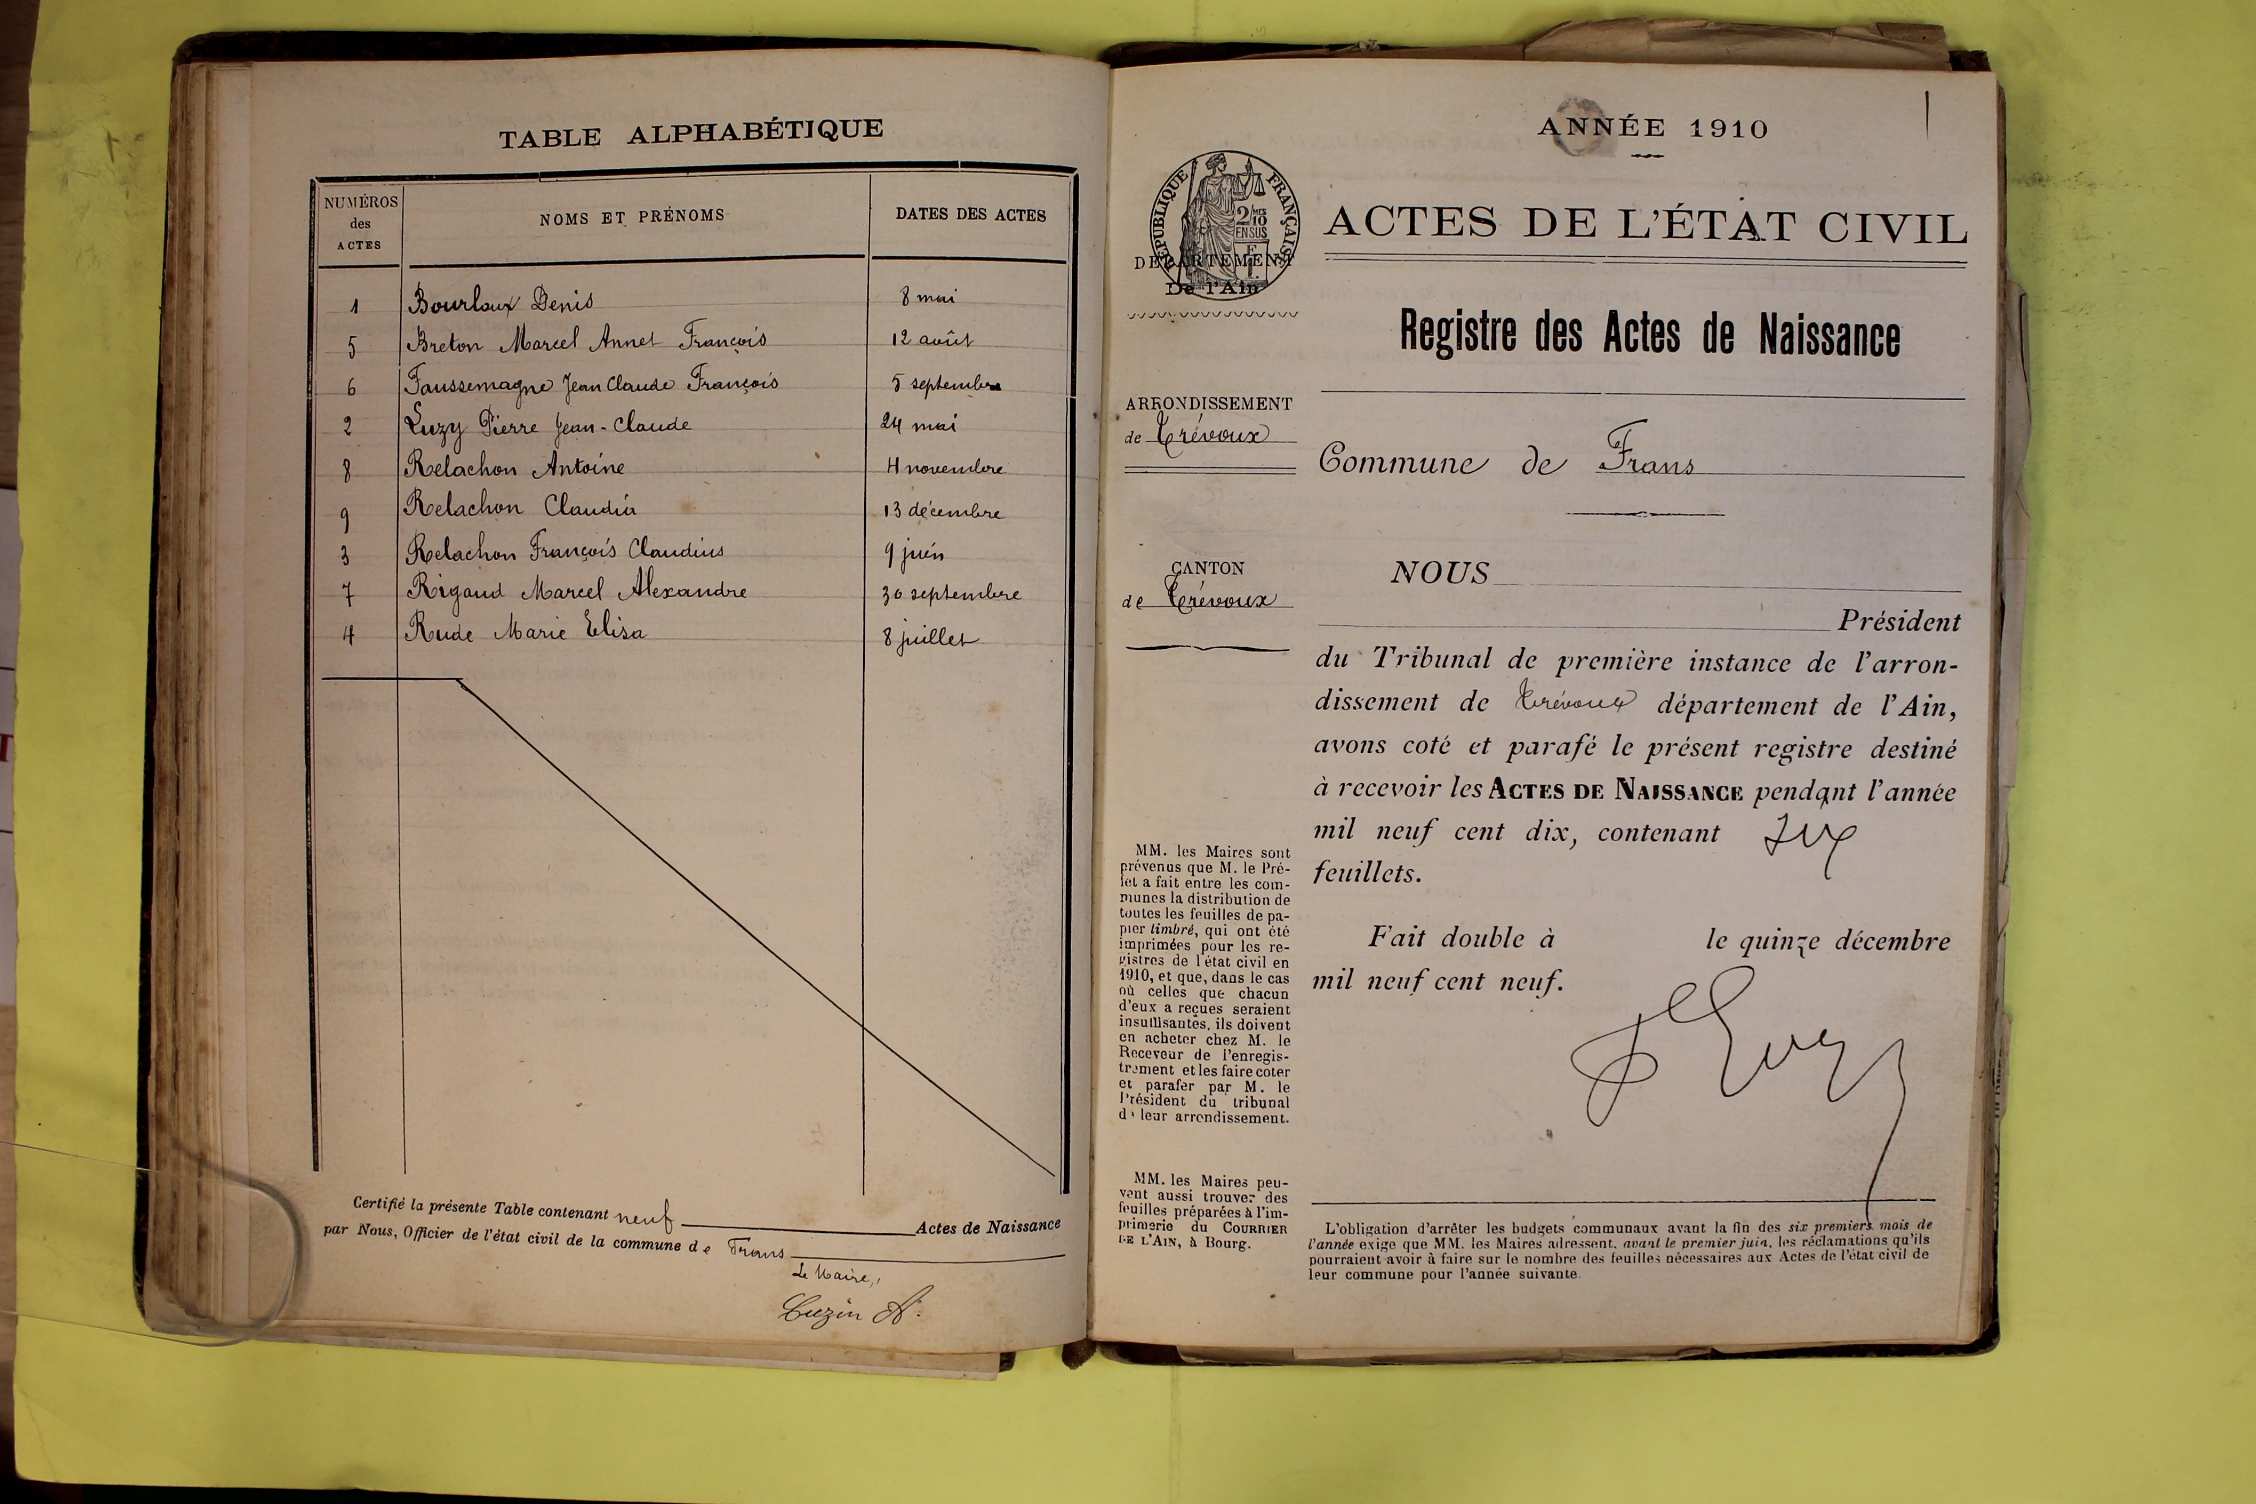 TABLE ALPHABÉTIQUE
NUMÉROS des ACTES NOMS ET PRÉNOMS DATES DES ACTES
1 Bourloux Denis 8 mai
5 Breton Marcel Annet François 12 août
6 Faussemagne Jean Claude François 5 septembre
2 Luzy Pierre Jean-Claude 24 mai
8 Relachon Antoine 4 novembre
9 Relachon Claudia 13 décembre
3 Relachon François Claudius 9 juin
7 Rigaud Marcel Alexandre 30 septembre
4 Rude Marie Elisa 8 juillet
Certifié la présente Table contenant neuf Actes de Naissance
par Nous, Officier de l'état civil de la commune de Frans
Le Maire,
Cuzin A.
ANNÉE 1910
RÉPUBLIQUE FRANÇAISE
2/10 EN SUS
DÉPARTEMENT
De l'Ain
ARRONDISSEMENT
de Trévoux
CANTON
de Trévoux
MM. les Maires sont
prévenus que M. le Pré-
fet a fait entre les com-
munes la distribution de
toutes les feuilles de pa-
pier timbré, qui ont été
imprimées pour les re-
gistres de l'état civil en
1910, et que, dans le cas
où celles que chacun
d'eux a reçues seraient
insuffisantes, ils doivent
en acheter chez M. le
Receveur de l'enregis-
trement et les faire coter
et parafer par M. le
Président du tribunal
de leur arrondissement.
MM. les Maires peu-
vent aussi trouver des
feuilles préparées à l'im-
primerie du COURRIER
DE L'AIN, à Bourg.
ACTES DE L'ÉTAT CIVIL
Registre des Actes de Naissance
Commune de Frans
NOUS
Président
du Tribunal de première instance de l'arron-
dissement de Trévoux département de l'Ain,
avons coté et parafé le présent registre destiné
à recevoir les ACTES DE NAISSANCE pendant l'année
mil neuf cent dix, contenant six
feuillets.
Fait double à le quinze décembre
mil neuf cent neuf.
L'obligation d'arrêter les budgets communaux avant la fin des six premiers mois de
l'année exige que MM. les Maires adressent, avant le premier juin, les réclamations qu'ils
pourraient avoir à faire sur le nombre des feuilles nécessaires aux Actes de l'état civil de
leur commune pour l'année suivante.